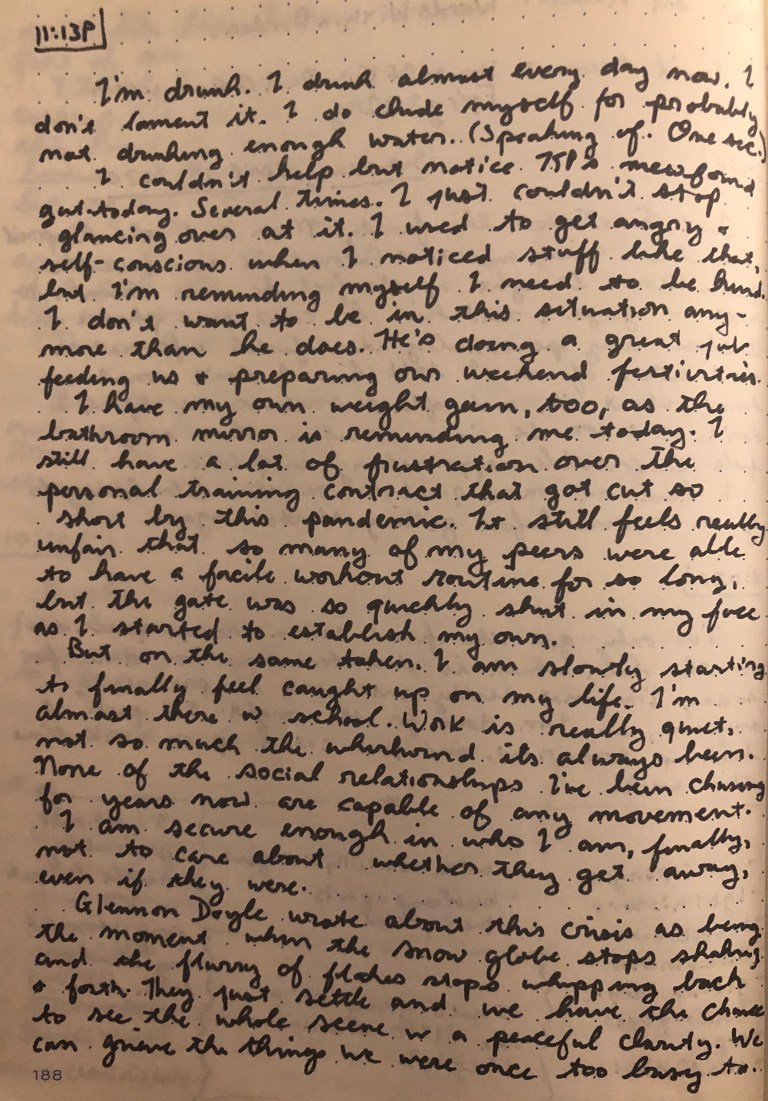 11:13P
I'm drunk. I drink almost every day now. I
don't lament it. I do chide myself for probably
not drinking enough water. (Speaking of. One sec.)
I couldn't help but notice newfound
gut today. Several times. I just couldn't stop
glancing over at it. I used to get angry &
self-conscious when I noticed stuff like that,
but I'm reminding myself I need to be kind.
I don't want to be in this situation any-
more than he does. He's doing a great job
feeding us & preparing our weekend festivities.
I have my own weight gain, too, as the
bathroom mirror is reminding me today. I
still have a lot of frustration over the
personal training contract that got cut so
short by this pandemic. It still feels really
unfair that so many of my peers were able
to have a facile workout routine for so long,
but the gate was so quickly shut in my face
as I started to establish my own.
But on the same token. I am slowly starting
to finally feel caught up on my life. I'm
almost there w school. Work is really quiet,
not so much the whirlwind its always been.
None of the social relationships I've been chasing
for years now are capable of any movement.
I am secure enough in who I am, finally,
not to care about whether they get away,
even if they were.
Glennon Doyle wrote about this crisis as being
the moment when the snow globe stops shaking
and the flurry of flakes stops whipping back
& forth. They just settle and we have the chance
to see the whole scene w a peaceful clarity. We
can grieve the things we were once too busy to.
188